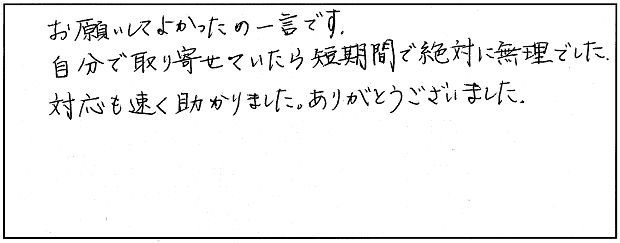 お願いしてよかったの一言です.
自分で取り寄せていたら短期間で絶対に無理でした.
対応も速く助かりました。ありがとうございました.